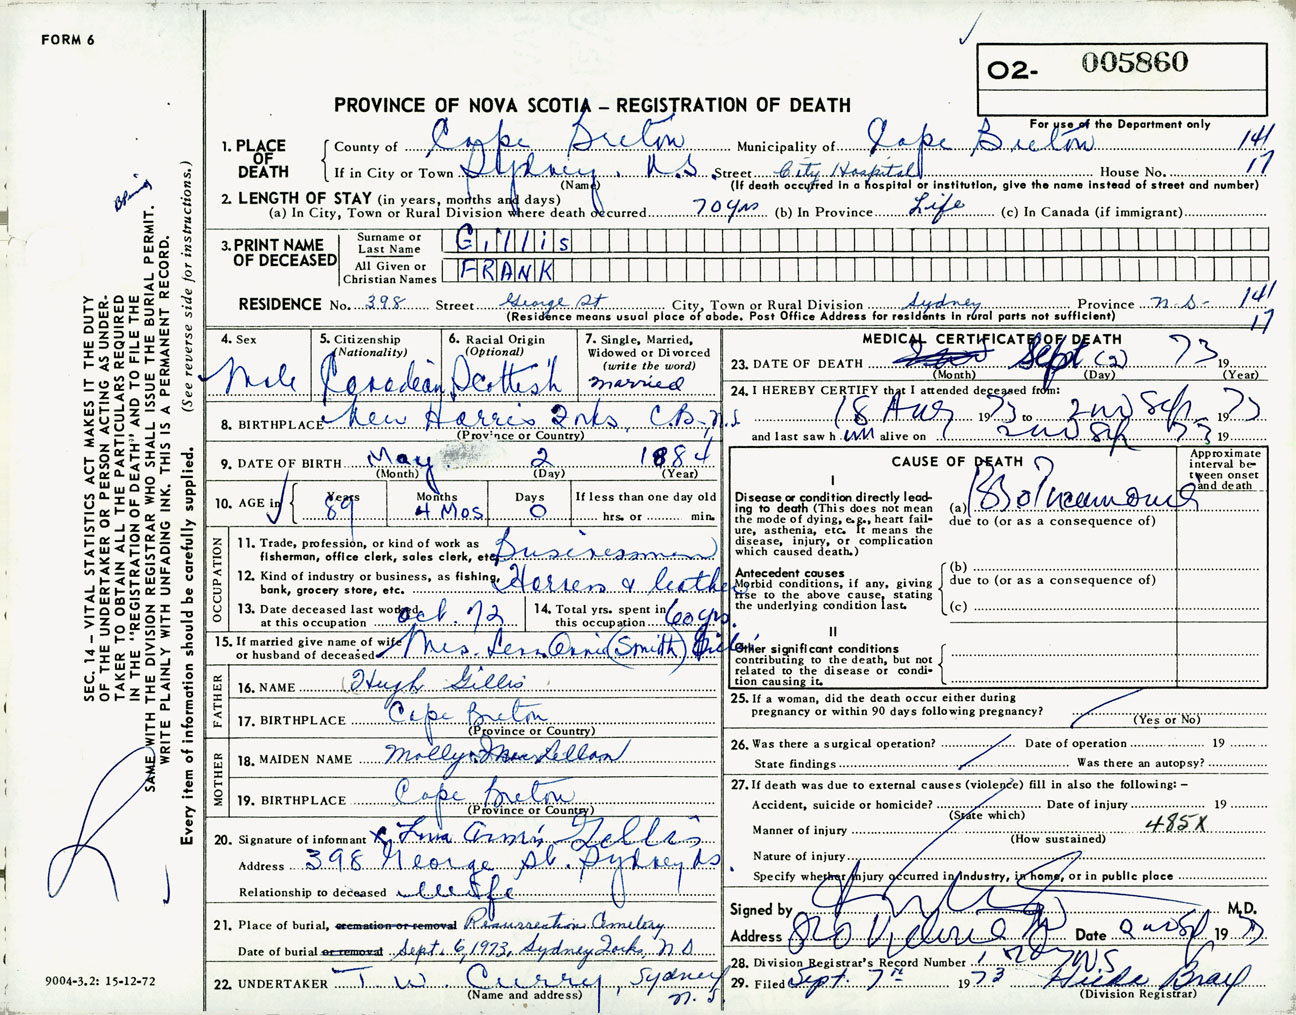 FORM 6
O2- 005860
PROVINCE OF NOVA SCOTIA – REGISTRATION OF DEATH
For use of the Department only
1. PLACE OF DEATH
County of Cape Breton Municipality of Cape Breton 141
If in City or Town Sydney, N.S. Street City Hospital House No. 17
(Name) (If death occurred in a hospital or institution, give the name instead of street and number)
2. LENGTH OF STAY (in years, months and days)
(a) In City, Town or Rural Division where death occurred 70 yrs (b) In Province Life (c) In Canada (if immigrant)
3. PRINT NAME OF DECEASED
Surname or Last Name Gillis
All Given or Christian Names FRANK
RESIDENCE No. 398 Street George St City, Town or Rural Division Sydney Province N-S- 141
(Residence means usual place of abode. Post Office Address for residents in rural parts not sufficient) 17
4. Sex Male
5. Citizenship (Nationality) Canadian
6. Racial Origin (Optional) Scottish
7. Single, Married, Widowed or Divorced (write the word) married
8. BIRTHPLACE New Harris Forks, C.B., N.S
(Province or Country)
9. DATE OF BIRTH May 2 1884
(Month) (Day) (Year)
10. AGE in Years 89 Months 4 Mos Days 0 If less than one day old hrs. or min.
OCCUPATION
11. Trade, profession, or kind of work as fisherman, office clerk, sales clerk, etc. Businessman
12. Kind of industry or business, as fishing, bank, grocery store, etc. Harness & leather
13. Date deceased last worked at this occupation Oct. 72
14. Total yrs. spent in this occupation 60 yrs.
15. If married give name of wife or husband of deceased Mrs. Lena Annie (Smith) Gillis
FATHER
16. NAME Hugh Gillis
17. BIRTHPLACE Cape Breton
(Province or Country)
MOTHER
18. MAIDEN NAME Molly MacLellan
19. BIRTHPLACE Cape Breton
(Province or Country)
20. Signature of informant x Lena Annie Gillis
Address 398 George St. Sydney NS.
Relationship to deceased Wife
21. Place of burial, cremation or removal Resurrection Cemetery
Date of burial or removal Sept. 6, 1973, Sydney Forks, N S
22. UNDERTAKER T. W. Curry, Sydney N.S.
(Name and address)
MEDICAL CERTIFICATE OF DEATH
23. DATE OF DEATH Sept (2) 73 19
(Month) (Day) (Year)
24. I HEREBY CERTIFY that I attended deceased from:
18 Aug 1973 to 2nd Sep 1973
and last saw him alive on 2nd Sep 73 19
CAUSE OF DEATH
Approximate interval between onset and death
I
Disease or condition directly leading to death (This does not mean the mode of dying, e.g., heart failure, asthenia, etc. It means the disease, injury, or complication which caused death.)
(a) B Pneumonia
due to (or as a consequence of)
Antecedent causes
Morbid conditions, if any, giving rise to the above cause, stating the underlying condition last.
(b)
due to (or as a consequence of)
(c)
II
Other significant conditions contributing to the death, but not related to the disease or condition causing it.
25. If a woman, did the death occur either during pregnancy or within 90 days following pregnancy?
(Yes or No)
26. Was there a surgical operation? Date of operation 19
State findings Was there an autopsy?
27. If death was due to external causes (violence) fill in also the following: –
Accident, suicide or homicide? Date of injury 19
(State which)
Manner of injury 485X
(How sustained)
Nature of injury
Specify whether injury occurred in industry, in home, or in public place
Signed by M.D.
Address Date 2nd Sep 1973
28. Division Registrar's Record Number
29. Filed Sept. 7th 1973 Hilda Bray
(Division Registrar)
SEC. 14 – VITAL STATISTICS ACT MAKES IT THE DUTY
OF THE UNDERTAKER OR PERSON ACTING AS UNDER-
TAKER TO OBTAIN ALL THE PARTICULARS REQUIRED
IN THE "REGISTRATION OF DEATH" AND TO FILE THE
SAME WITH THE DIVISION REGISTRAR WHO SHALL ISSUE THE BURIAL PERMIT.
WRITE PLAINLY WITH UNFADING INK. THIS IS A PERMANENT RECORD.
Every item of information should be carefully supplied. (See reverse side for instructions.)
9004-3.2: 15-12-72